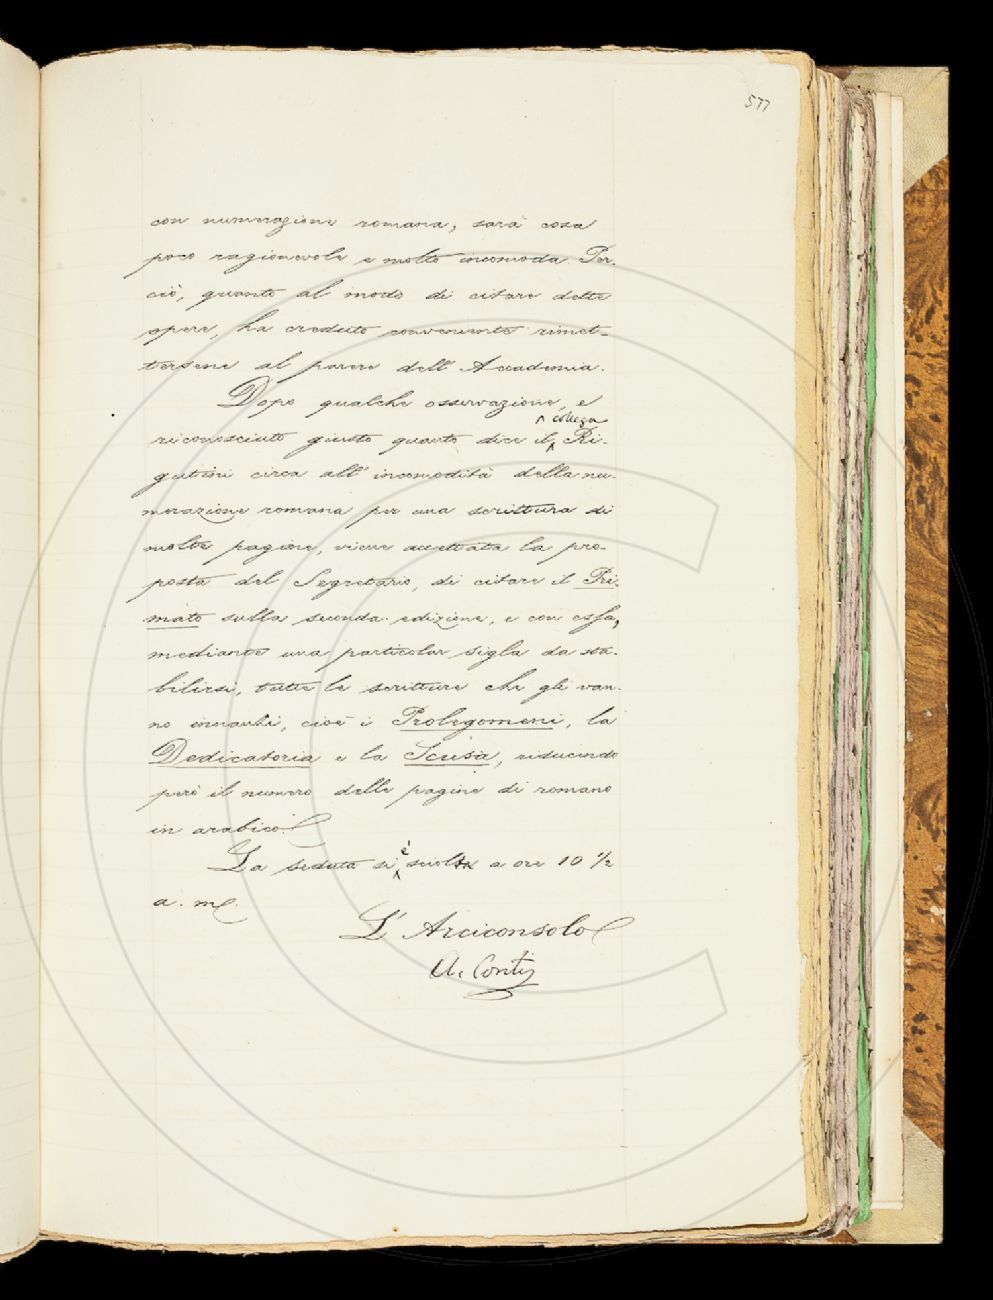 577
con numerazione romana, sarà cosa
poco ragionevole e molto incomoda. Per-
ciò, quanto al modo di citare dette
opere, ha creduto conveniente rimet-
tersene al parere dell'Accademia.
Dopo qualche osservazione, e
riconosciuto giusto quanto dice il collega Ri-
gutini circa all'incomodità della nu-
merazione romana per una scrittura di
molte pagine, viene accettata la pro-
posta del Segretario, di citare il Pri-
mato sulla seconda edizione, e con essa,
mediante una particolar sigla da sta-
bilirsi, tutte le scritture che gli van-
no innanzi, cioè i Prolegomeni, la
Dedicatoria e la Scusa, riducendo
però il numero delle pagine di romano
in arabico.
La seduta si è sciolta a ore 10 1/2
a. m.
L'Arciconsolo
A. Conti